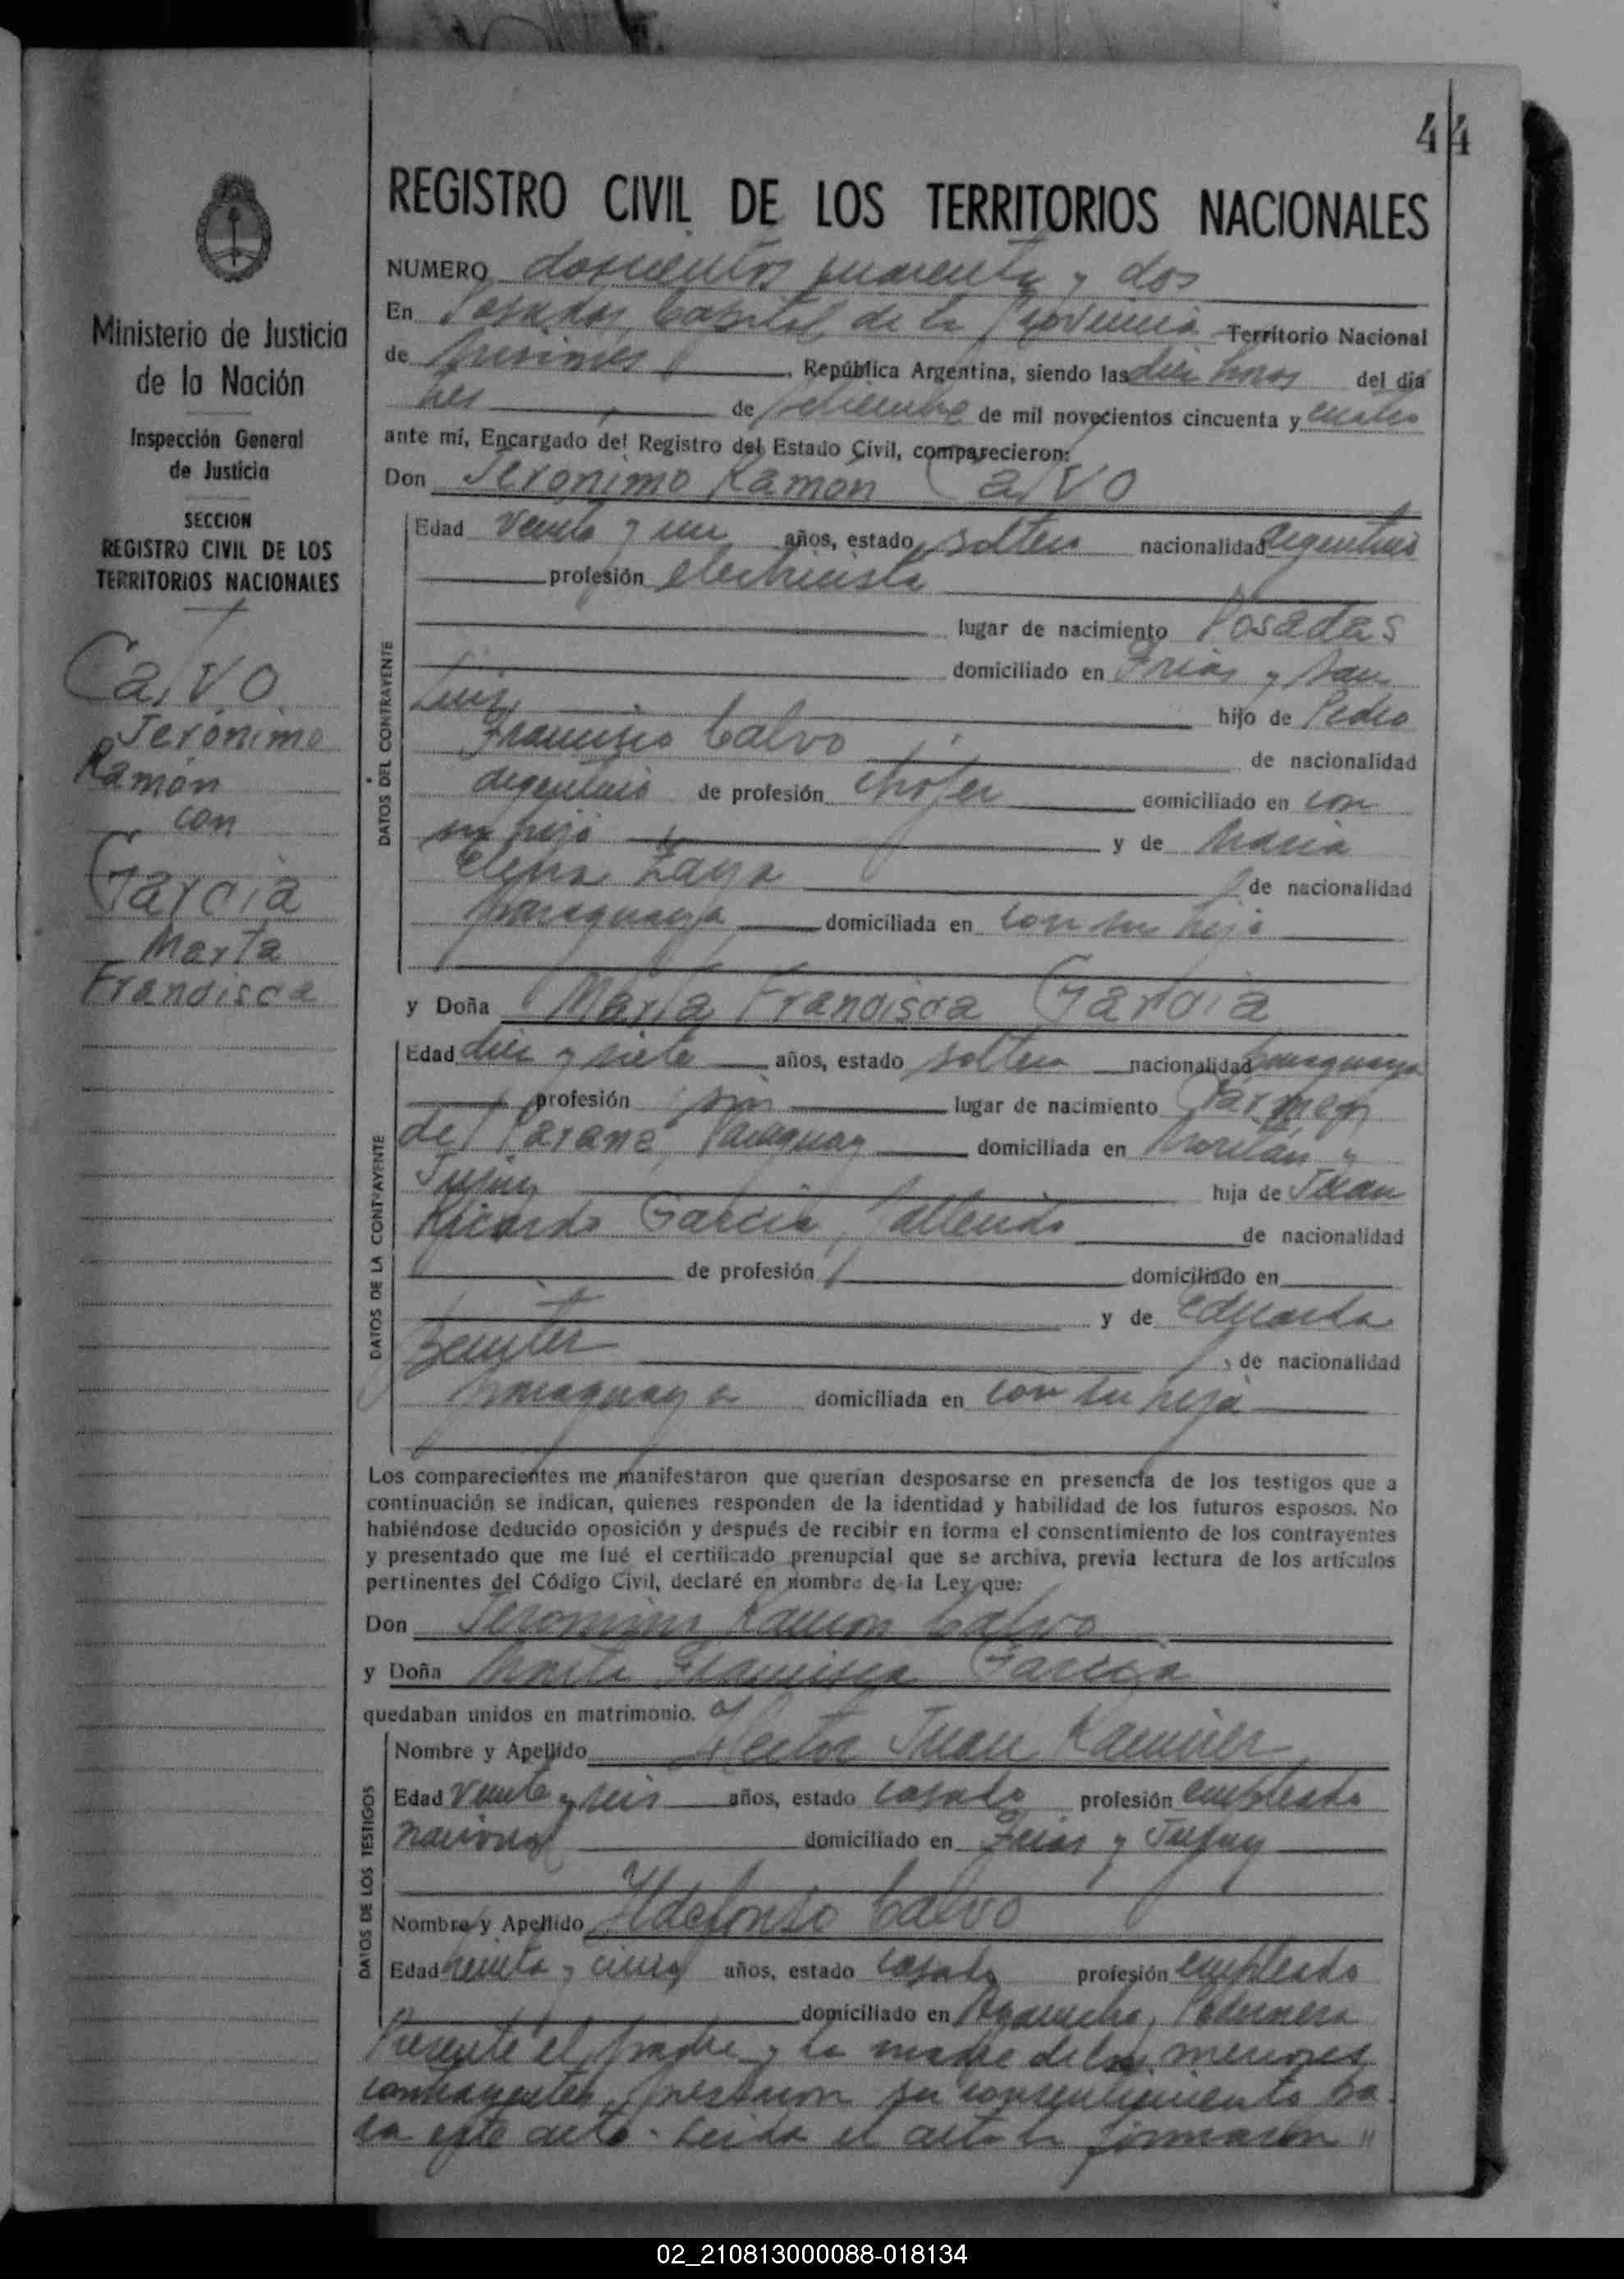 44
REGISTRO CIVIL DE LOS TERRITORIOS NACIONALES
Ministerio de Justicia
de la Nación
Inspección General
de Justicia
SECCION
REGISTRO CIVIL DE LOS
TERRITORIOS NACIONALES
Calvo
Jerónimo
Ramón
con
Garcia
Marta
Francisca
NUMERO doscientos cuarenta y dos
En Posadas, Capital de la Provincia Territorio Nacional
de Misiones, República Argentina, siendo las diez horas del día
tres de setiembre de mil novecientos cincuenta y cuatro
ante mí, Encargado del Registro del Estado Civil, comparecieron:
Don Jeronimo Ramon Calvo
DATOS DEL CONTRAYENTE
Edad veinte y un años, estado soltero nacionalidad argentino
profesión electricista
lugar de nacimiento Posadas
domiciliado en Frias y San
Luis hijo de Pedro
Francisco Calvo de nacionalidad
argentino de profesión chofer domiciliado en con
su hijo y de Maria
Elena Zaya de nacionalidad
paraguaya domiciliada en con su hijo
y Doña Marta Francisca Garcia
DATOS DE LA CONTRAYENTE
Edad diez y siete años, estado soltera nacionalidad paraguaya
profesión sin lugar de nacimiento Carmen
del Paraná, Paraguay domiciliada en y
Jujuy hija de Juan
Ricardo Garcia, fallecido de nacionalidad
de profesión domiciliado en
y de Eduarda
Benitez, de nacionalidad
paraguaya domiciliada en con su hija
Los comparecientes me manifestaron que querían desposarse en presencia de los testigos que a
continuación se indican, quienes responden de la identidad y habilidad de los futuros esposos. No
habiéndose deducido oposición y después de recibir en forma el consentimiento de los contrayentes
y presentado que me fué el certificado prenupcial que se archiva, previa lectura de los artículos
pertinentes del Código Civil, declaré en nombre de la Ley que:
Don Jeronimo Ramon Calvo
y Doña Marta Francisca Garcia
quedaban unidos en matrimonio.
DATOS DE LOS TESTIGOS
Nombre y Apellido Hector Juan Ramirez
Edad veinte y seis años, estado casado profesión empleado
nacional domiciliado en Frias y Jujuy
Nombre y Apellido Ildefonso Calvo
Edad treinta y cinco años, estado casado profesión empleado
domiciliado en Ayacucho y Pedernera
Presente el padre y la madre de los menores
contrayentes, prestaron su consentimiento pa-
ra este acto. Leida el acta la firmaron "
02_210813000088-018134